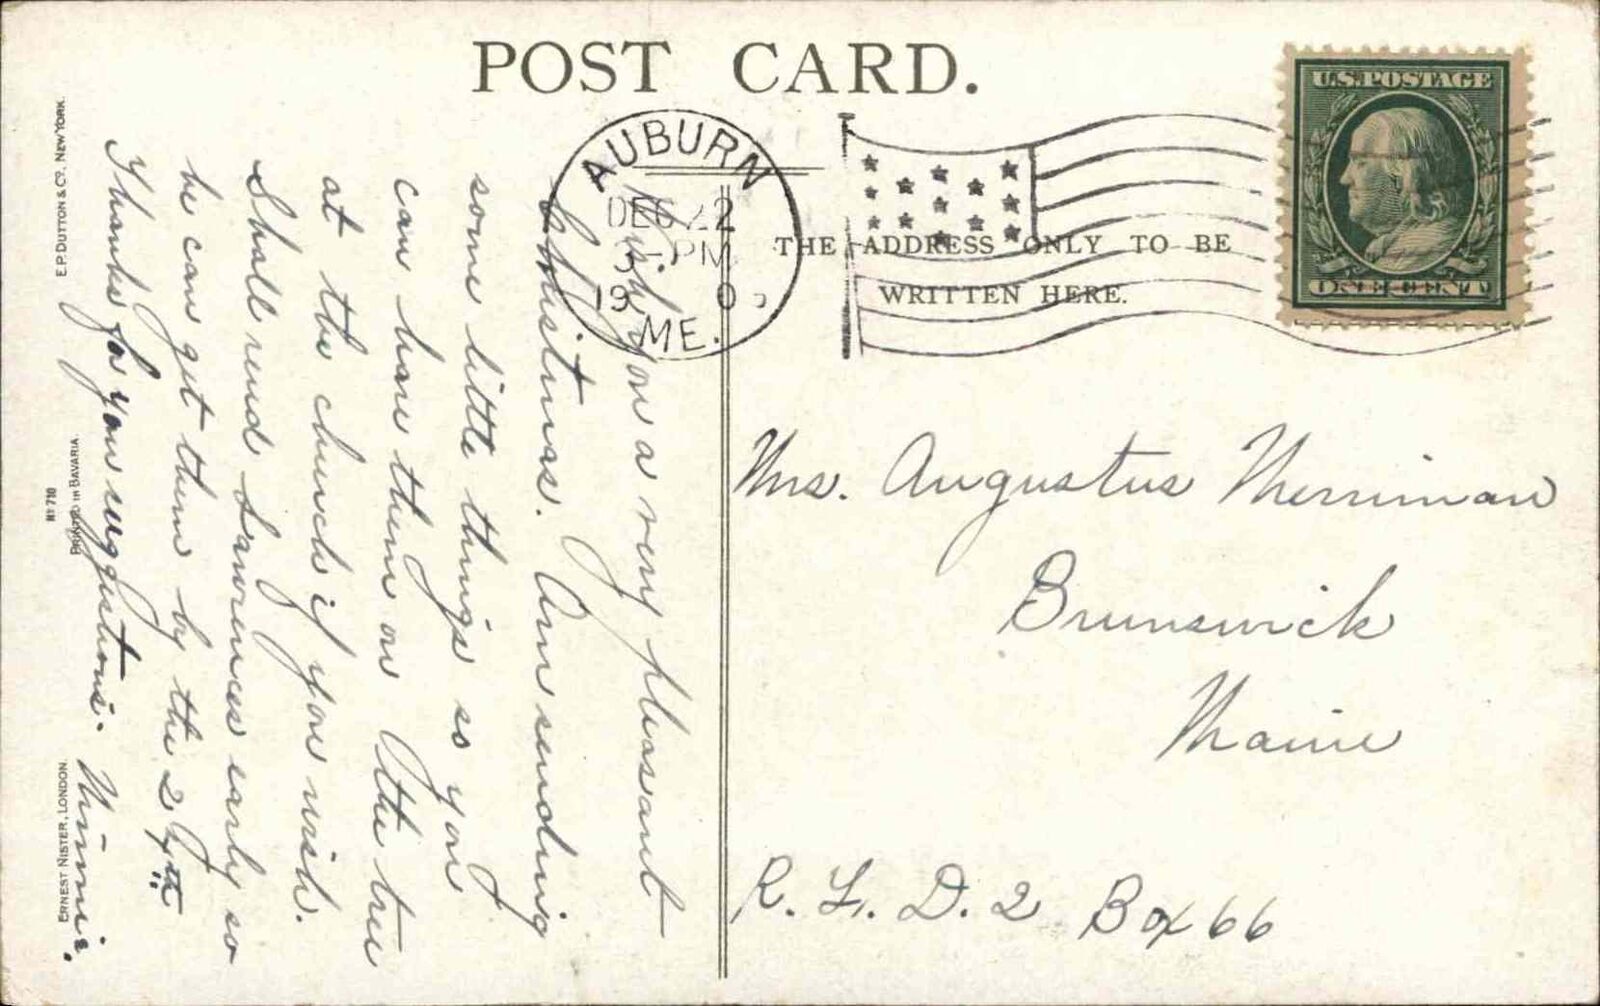 POST CARD.
AUBURN
DEC 22
3-PM
19 0
ME.
THE ADDRESS ONLY TO BE
WRITTEN HERE.
U.S. POSTAGE
ONE CENT
Wish you a very pleasant
Christmas. Am sending
some little things so you
can have them on the tree
at the church if you wish.
Shall send Lawrences early so
he can get them by the 24th
Thanks for your suggestions. Minnie.
Mrs. Augustus Merriman
Brunswick
Maine
R. F. D. 2 Box 66
E. P. DUTTON & CO. NEW YORK.
No 710
PRINTED IN BAVARIA.
ERNEST NISTER, LONDON.